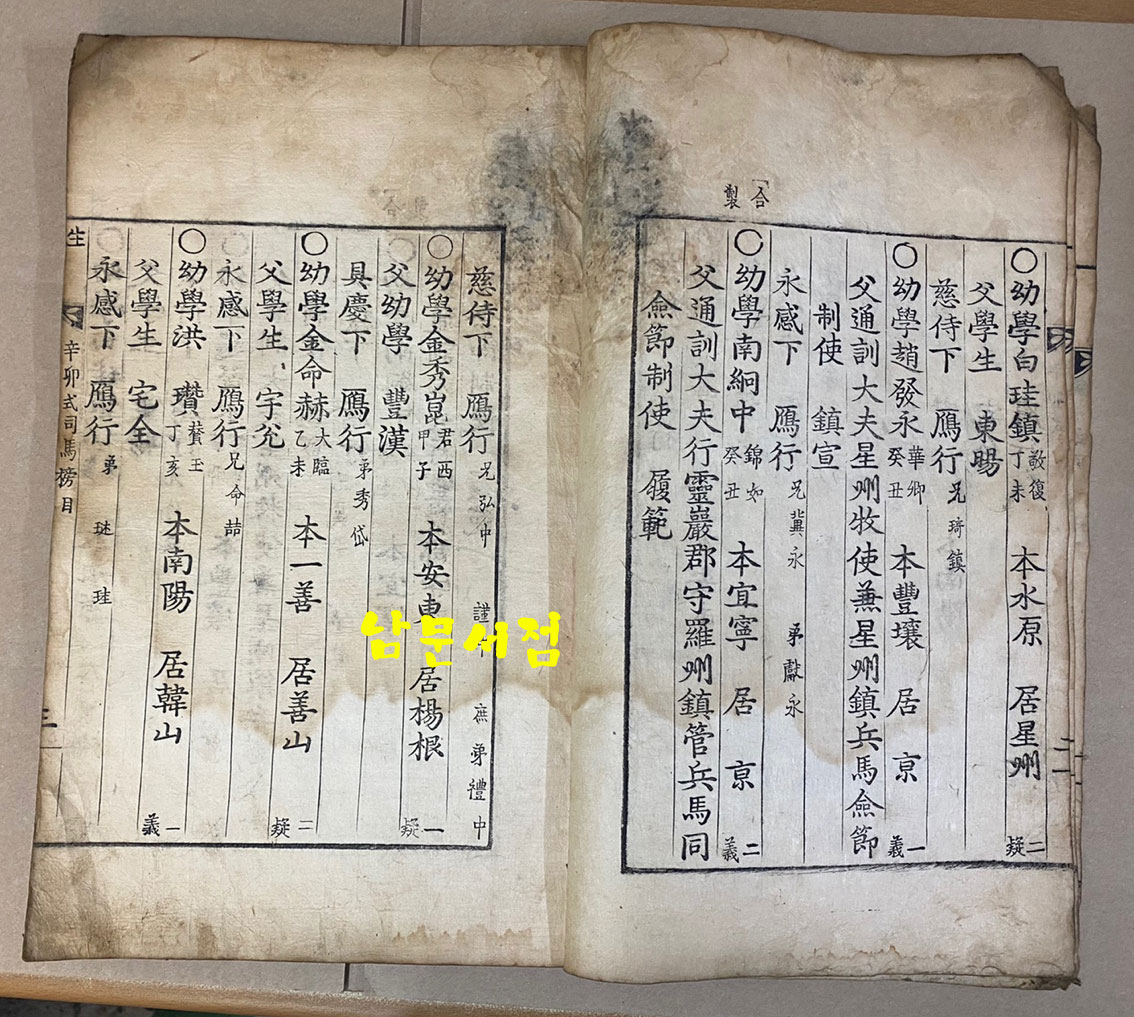 合製
○幼學白珪鎮 敬復 丁未 本水原 居星州 二疑
父學生 東暘
慈侍下 鴈行 兄琦鎮
○幼學趙發永 華卿 癸丑 本豐壤 居京 一義
父通訓大夫星州牧使兼星州鎮兵馬僉節
制使 鎮宣
永感下 鴈行 兄冀永 弟獻永
○幼學南絅中 錦如 癸丑 本宜寧 居京 二義
父通訓大夫行靈巖郡守羅州鎮管兵馬同
僉節制使 履範
慈侍下 鴈行 兄弘中 謹中 庶弟禮中
○幼學金秀崑 君西 甲子 本安東 居楊根 一疑
父幼學 豐漢
具慶下 鴈行 弟秀岱
○幼學金命赫 大臨 乙未 本一善 居善山 二疑
父學生 宇兊
永感下 鴈行 兄命喆
○幼學洪 瓚 贊玉 丁亥 本南陽 居韓山 一義
父學生 宅全
永感下 鴈行 弟 珪
生 辛卯式司馬榜目 三
남문서점